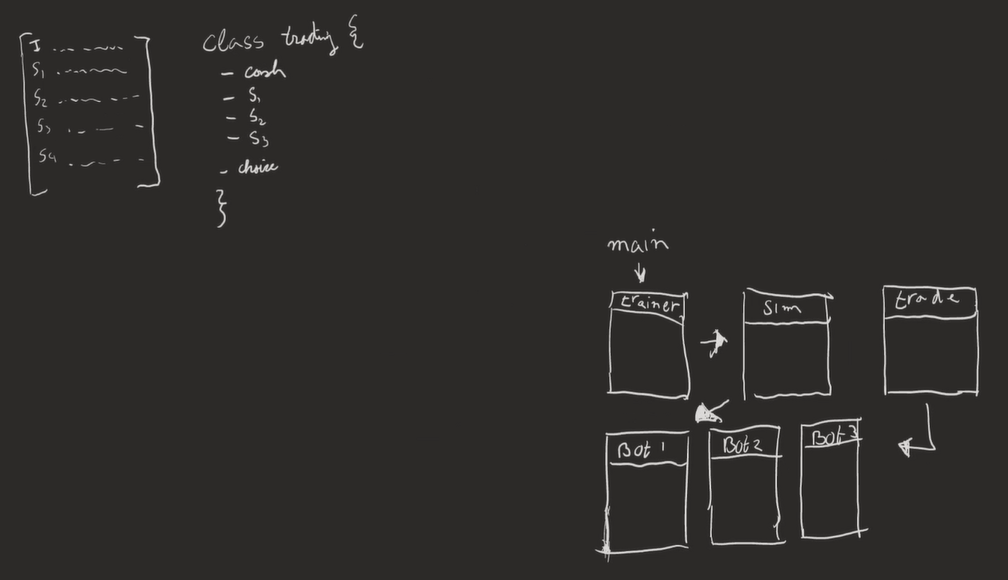 I
S1
S2
S3
S4
class trading {
- cash
- S1
- S2
- S3
- choice
}
main
trainer
Sim
trade
Bot 1
Bot 2
Bot 3